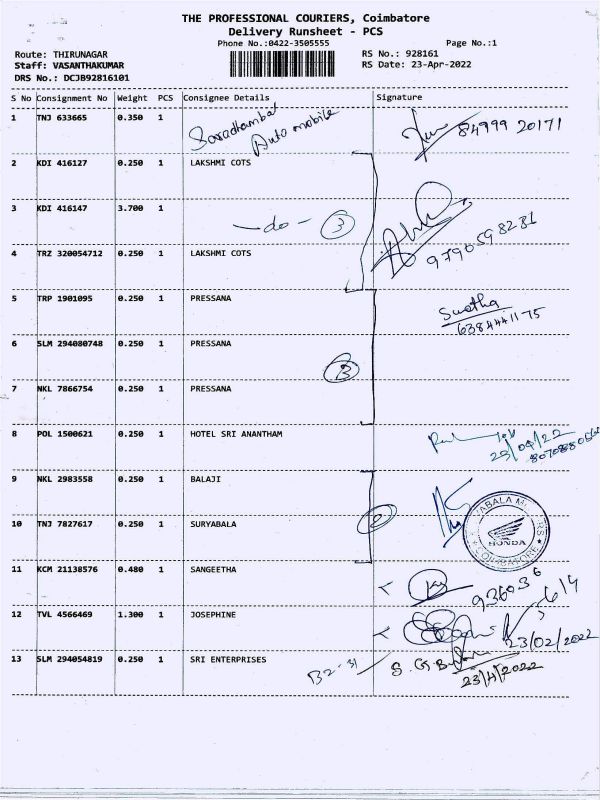 THE PROFESSIONAL COURIERS, Coimbatore
Delivery Runsheet - PCS
Phone No.:0422-3505555 Page No.:1
Route: THIRUNAGAR RS No.: 928161
Staff: VASANTHAKUMAR RS Date: 23-Apr-2022
DRS No.: DCJB92816101
S No Consignment No Weight PCS Consignee Details Signature
1 TNJ 633665 0.350 1 Saradhambal Auto mobile 84999 20171
2 KDI 416127 0.250 1 LAKSHMI COTS
3 KDI 416147 3.700 1 - do - 3
9790598231
4 TRZ 320054712 0.250 1 LAKSHMI COTS
5 TRP 1901095 0.250 1 PRESSANA Swetha
6384441175
6 SLM 294080748 0.250 1 PRESSANA
3
7 NKL 7866754 0.250 1 PRESSANA
8 POL 1500621 0.250 1 HOTEL SRI ANANTHAM
23/04/22
9 NKL 2983558 0.250 1 BALAJI
2
10 TNJ 7827617 0.250 1 SURYABALA
HONDA
COIMBATORE
11 KCM 21138576 0.480 1 SANGEETHA
936036
12 TVL 4566469 1.300 1 JOSEPHINE
23/02/2022
13 SLM 294054819 0.250 1 SRI ENTERPRISES
B2-31
23/4/2022